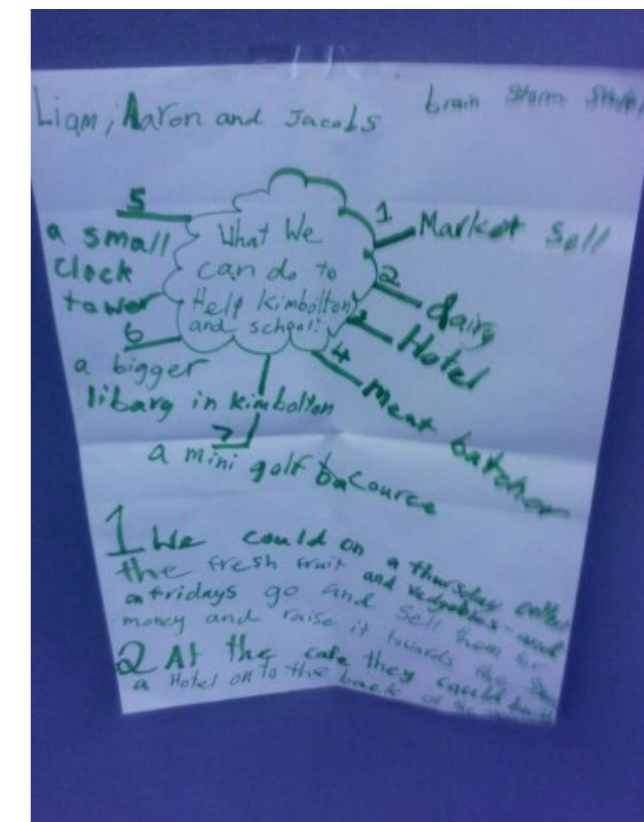 Liam, Aaron and Jacobs
brain Storm
What We
can do to
Help kimbolton
and school!
1
Market Sell
2
dairy
3
Hotel
4
meat butcher
5
a small
clock
tower
6
a bigger
libary in kimbolton
7
a mini golf Cource
1 We could on a thursday collect
the fresh fruit and vedgtables and
a fridays go and Sell them for
money and raise it towards the
2 At the cafe they could build
a Hotel on to the back of the